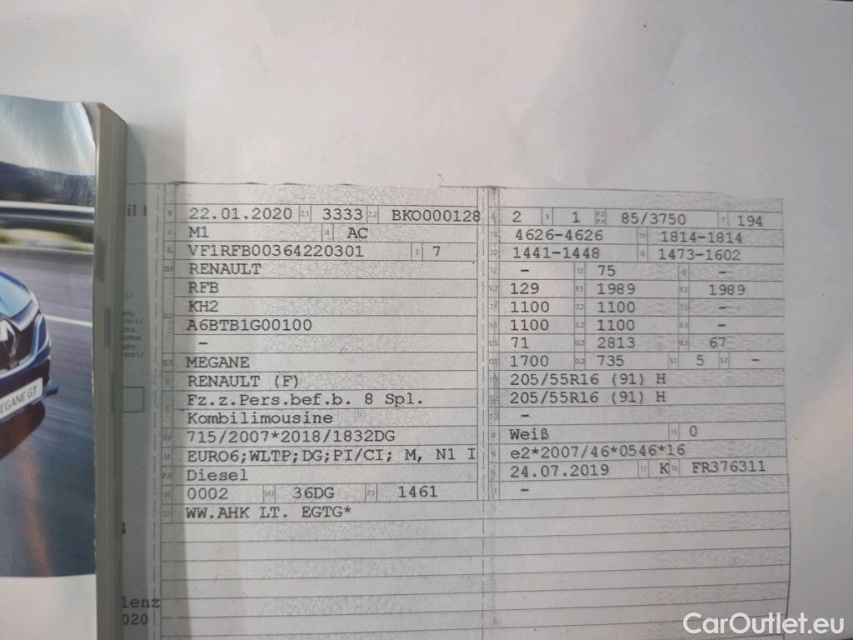 22.01.2020 3333 BKO000128 2 1 85/3750 194
M1 AC 4626-4626 1814-1814
VF1RFB00364220301 7 1441-1448 1473-1602
RENAULT - 75 -
RFB 129 1989 1989
KH2 1100 1100 -
A6BTB1G00100 1100 1100 -
- 71 2813 67
MEGANE 1700 735 5 -
RENAULT (F) 205/55R16 (91) H
Fz.z.Pers.bef.b. 8 Spl. 205/55R16 (91) H
Kombilimousine -
715/2007*2018/1832DG Weiß 0
EURO6;WLTP;DG;PI/CI; M, N1 I e2*2007/46*0546*16
Diesel 24.07.2019 K FR376311
0002 36DG 1461 -
WW.AHK LT. EGTG*
MEGANE GT
lenz
020
CarOutlet.eu